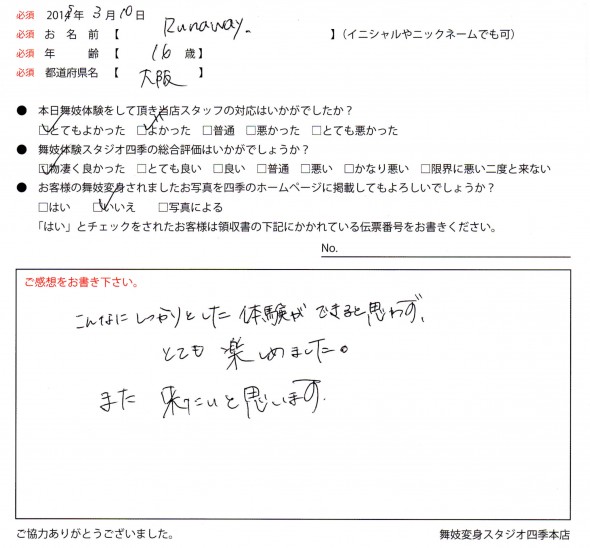 必須 2018年 3月10日
必須 お名前【 Runaway. 】(イニシャルやニックネームでも可)
必須 年齢【 16 歳】
必須 都道府県名【 大阪 】
● 本日舞妓体験をして頂き当店スタッフの対応はいかがでしたか?
☑とてもよかった ☑よかった □普通 □悪かった □とても悪かった
● 舞妓体験スタジオ四季の総合評価はいかがでしょうか?
☑物凄く良かった □とても良い □良い □普通 □悪い □かなり悪い □限界に悪い二度と来ない
● お客様の舞妓変身されましたお写真を四季のホームページに掲載してもよろしいでしょうか?
□はい ☑いいえ □写真による
「はい」とチェックをされたお客様は領収書の下記にかかれている伝票番号をお書きください。
No.
ご感想をお書き下さい。
こんなにしっかりとした体験ができると思わず、
とても楽しめました。
また 来たいと思います。
ご協力ありがとうございました。 舞妓変身スタジオ四季本店